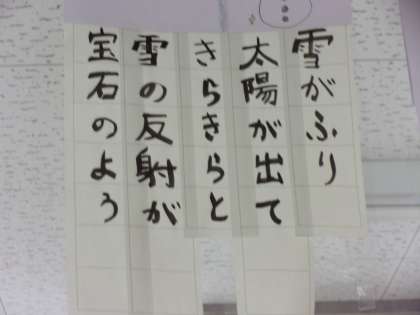 雪がふり
太陽が出て
きらきらと
雪の反射が
宝石のよう